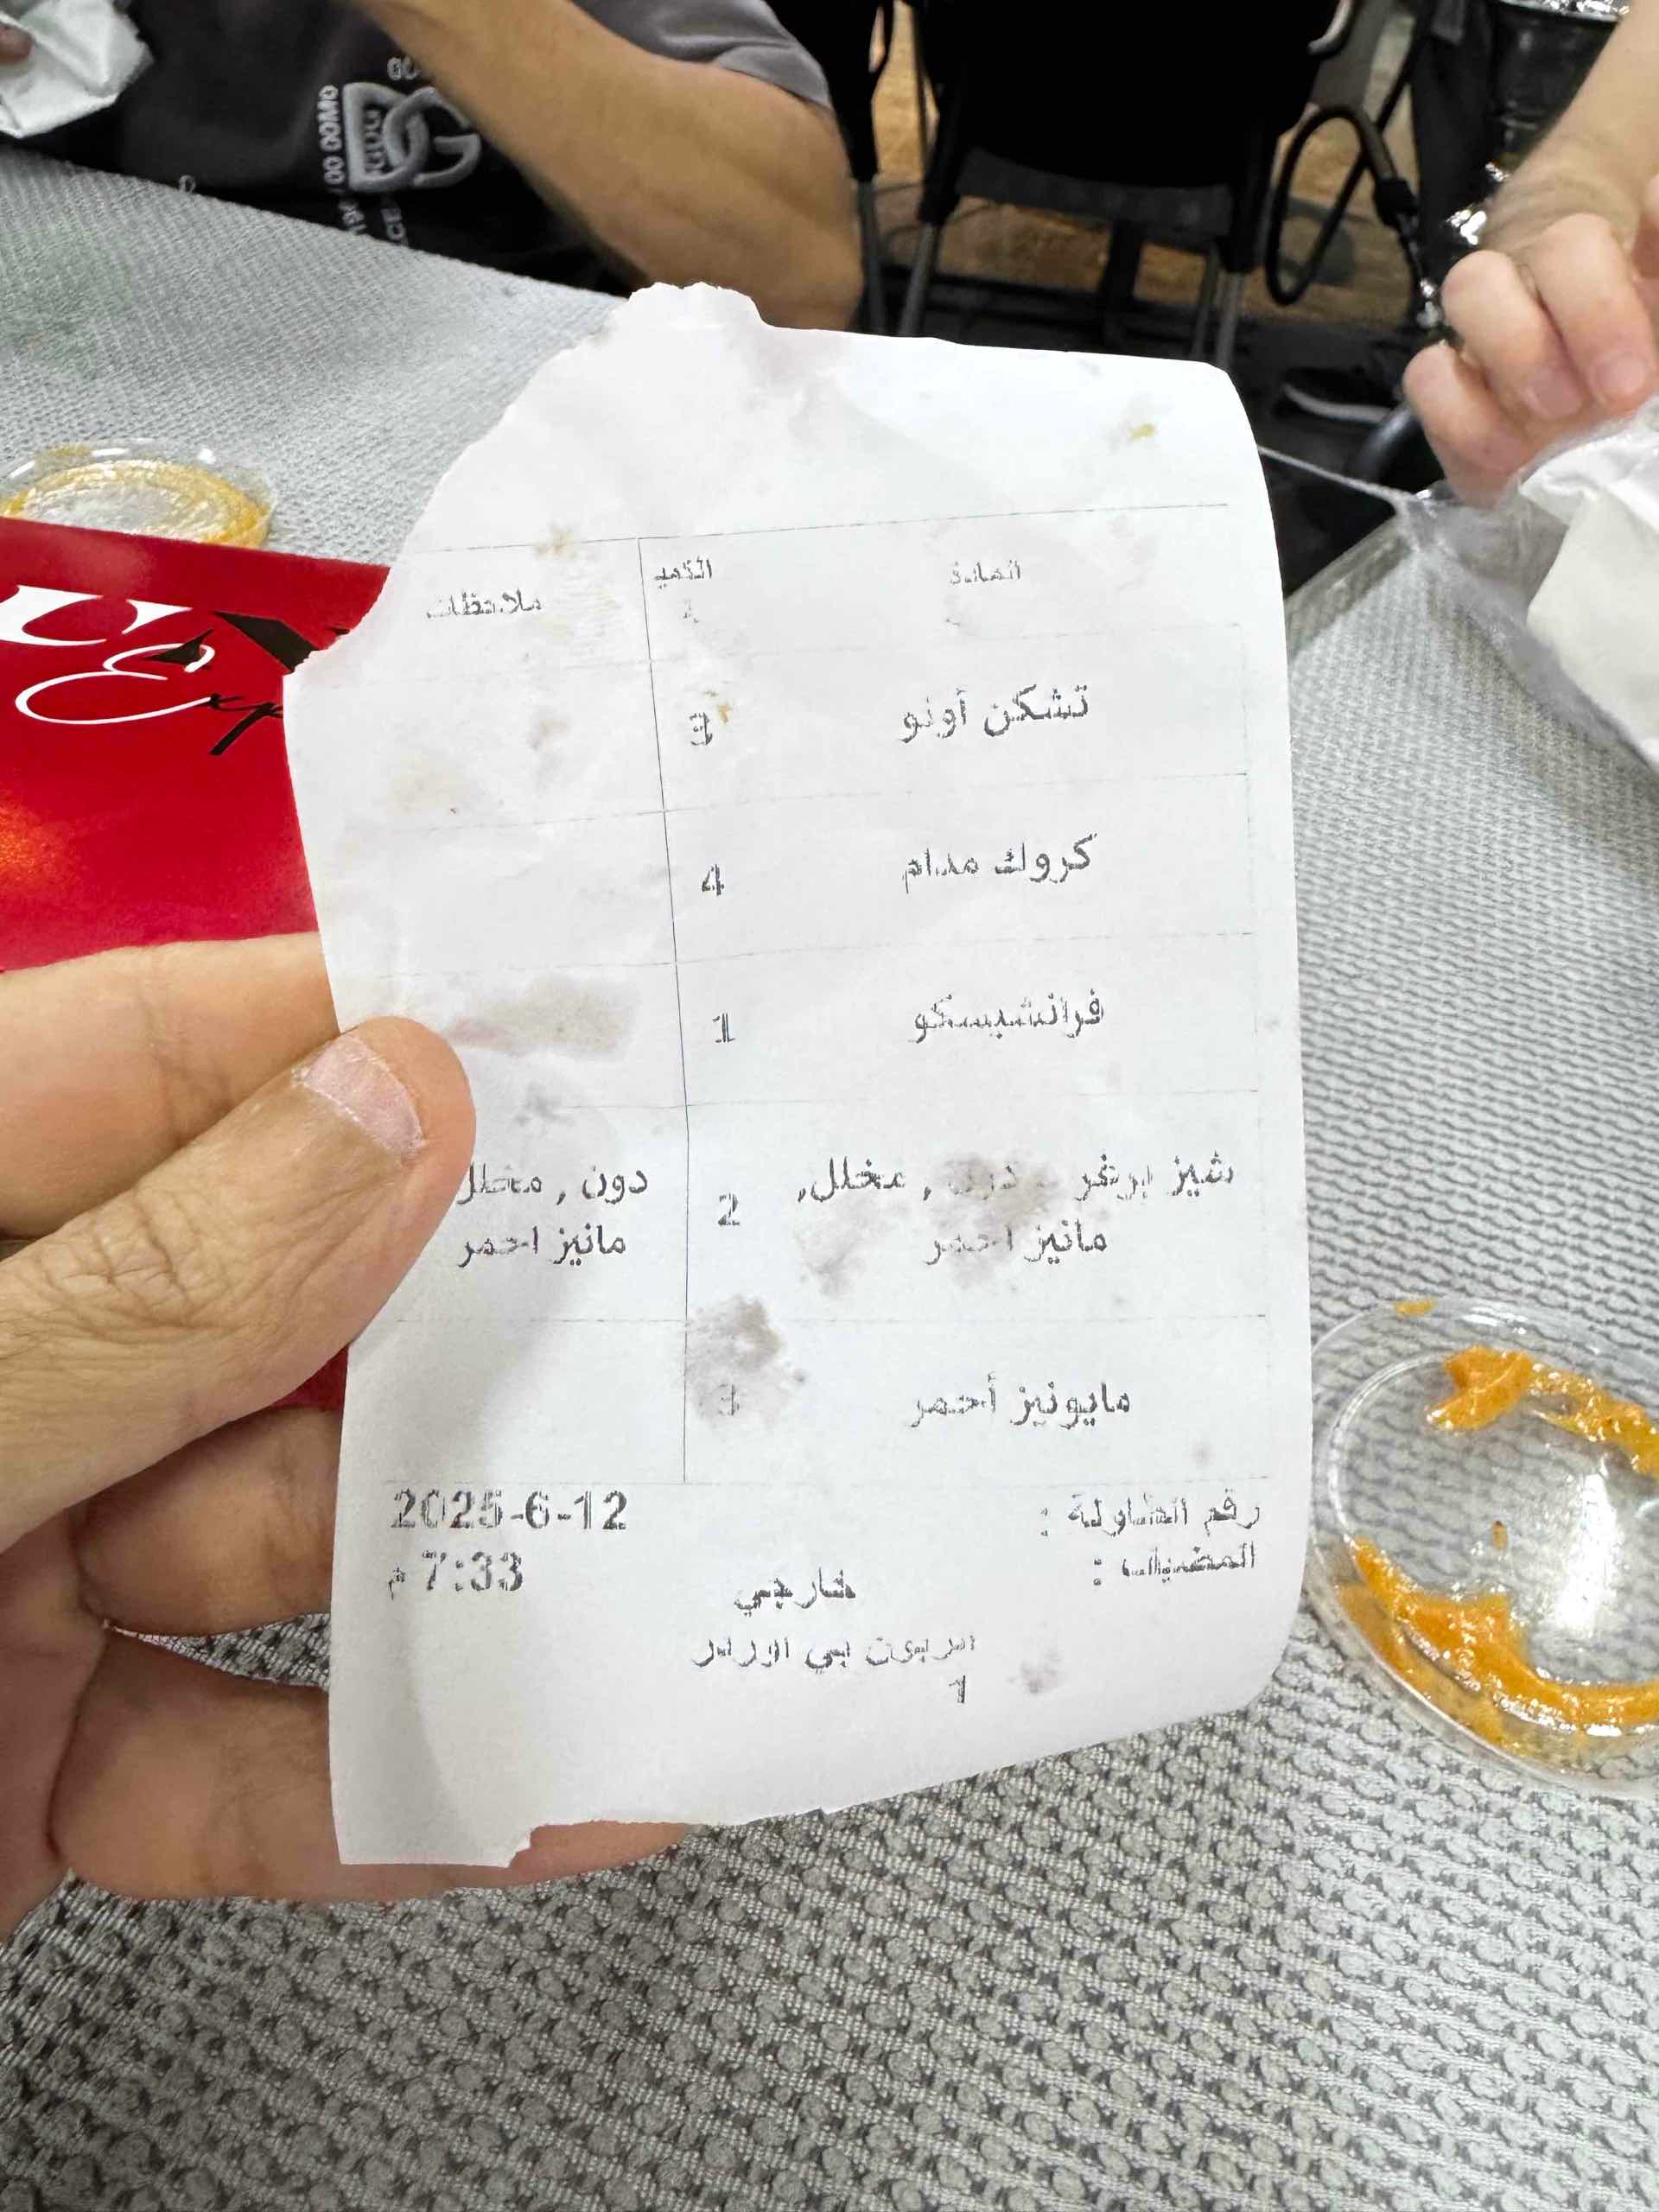 المادة الكمية ملاحظات
تشكن أونو 3
كروك مدام 4
فرانشيسكو 1
شيز برغر - دون , مخلل, 2 دون , مخلل
مانيز احمر مانيز احمر
مايونيز أحمر 3
رقم الطاولة : 2025-6-12
المضيف : 7:33 م
خارجي
بي اوردر
1
Exp